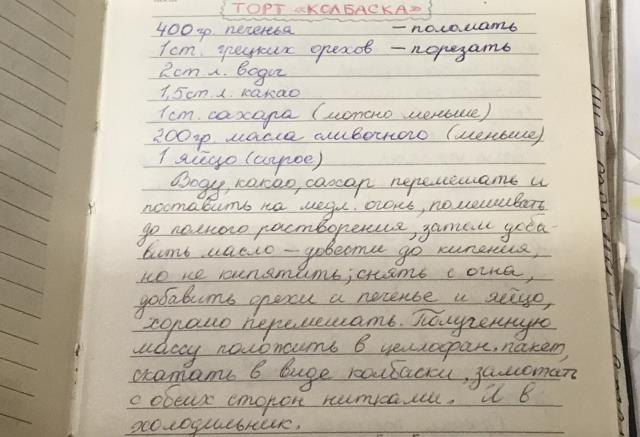 ТОРТ «КОЛБАСКА»
400 гр. печенья – поломать
1 ст. грецких орехов – порезать
2 ст. л. воды
1,5 ст. л. какао
1 ст. сахара (можно меньше)
200 гр. масла сливочного (меньше)
1 яйцо (сырое)
Воду, какао, сахар перемешать и
поставить на медл. огонь, помешивать
до полного растворения, затем доба-
вить масло – довести до кипения,
но не кипятить; снять с огня,
добавить орехи и печенье и яйцо,
хорошо перемешать. Полученную
массу положить в целлофан. пакет,
скатать в виде колбаски, замотать
с обеих сторон нитками. И в
холодильник.